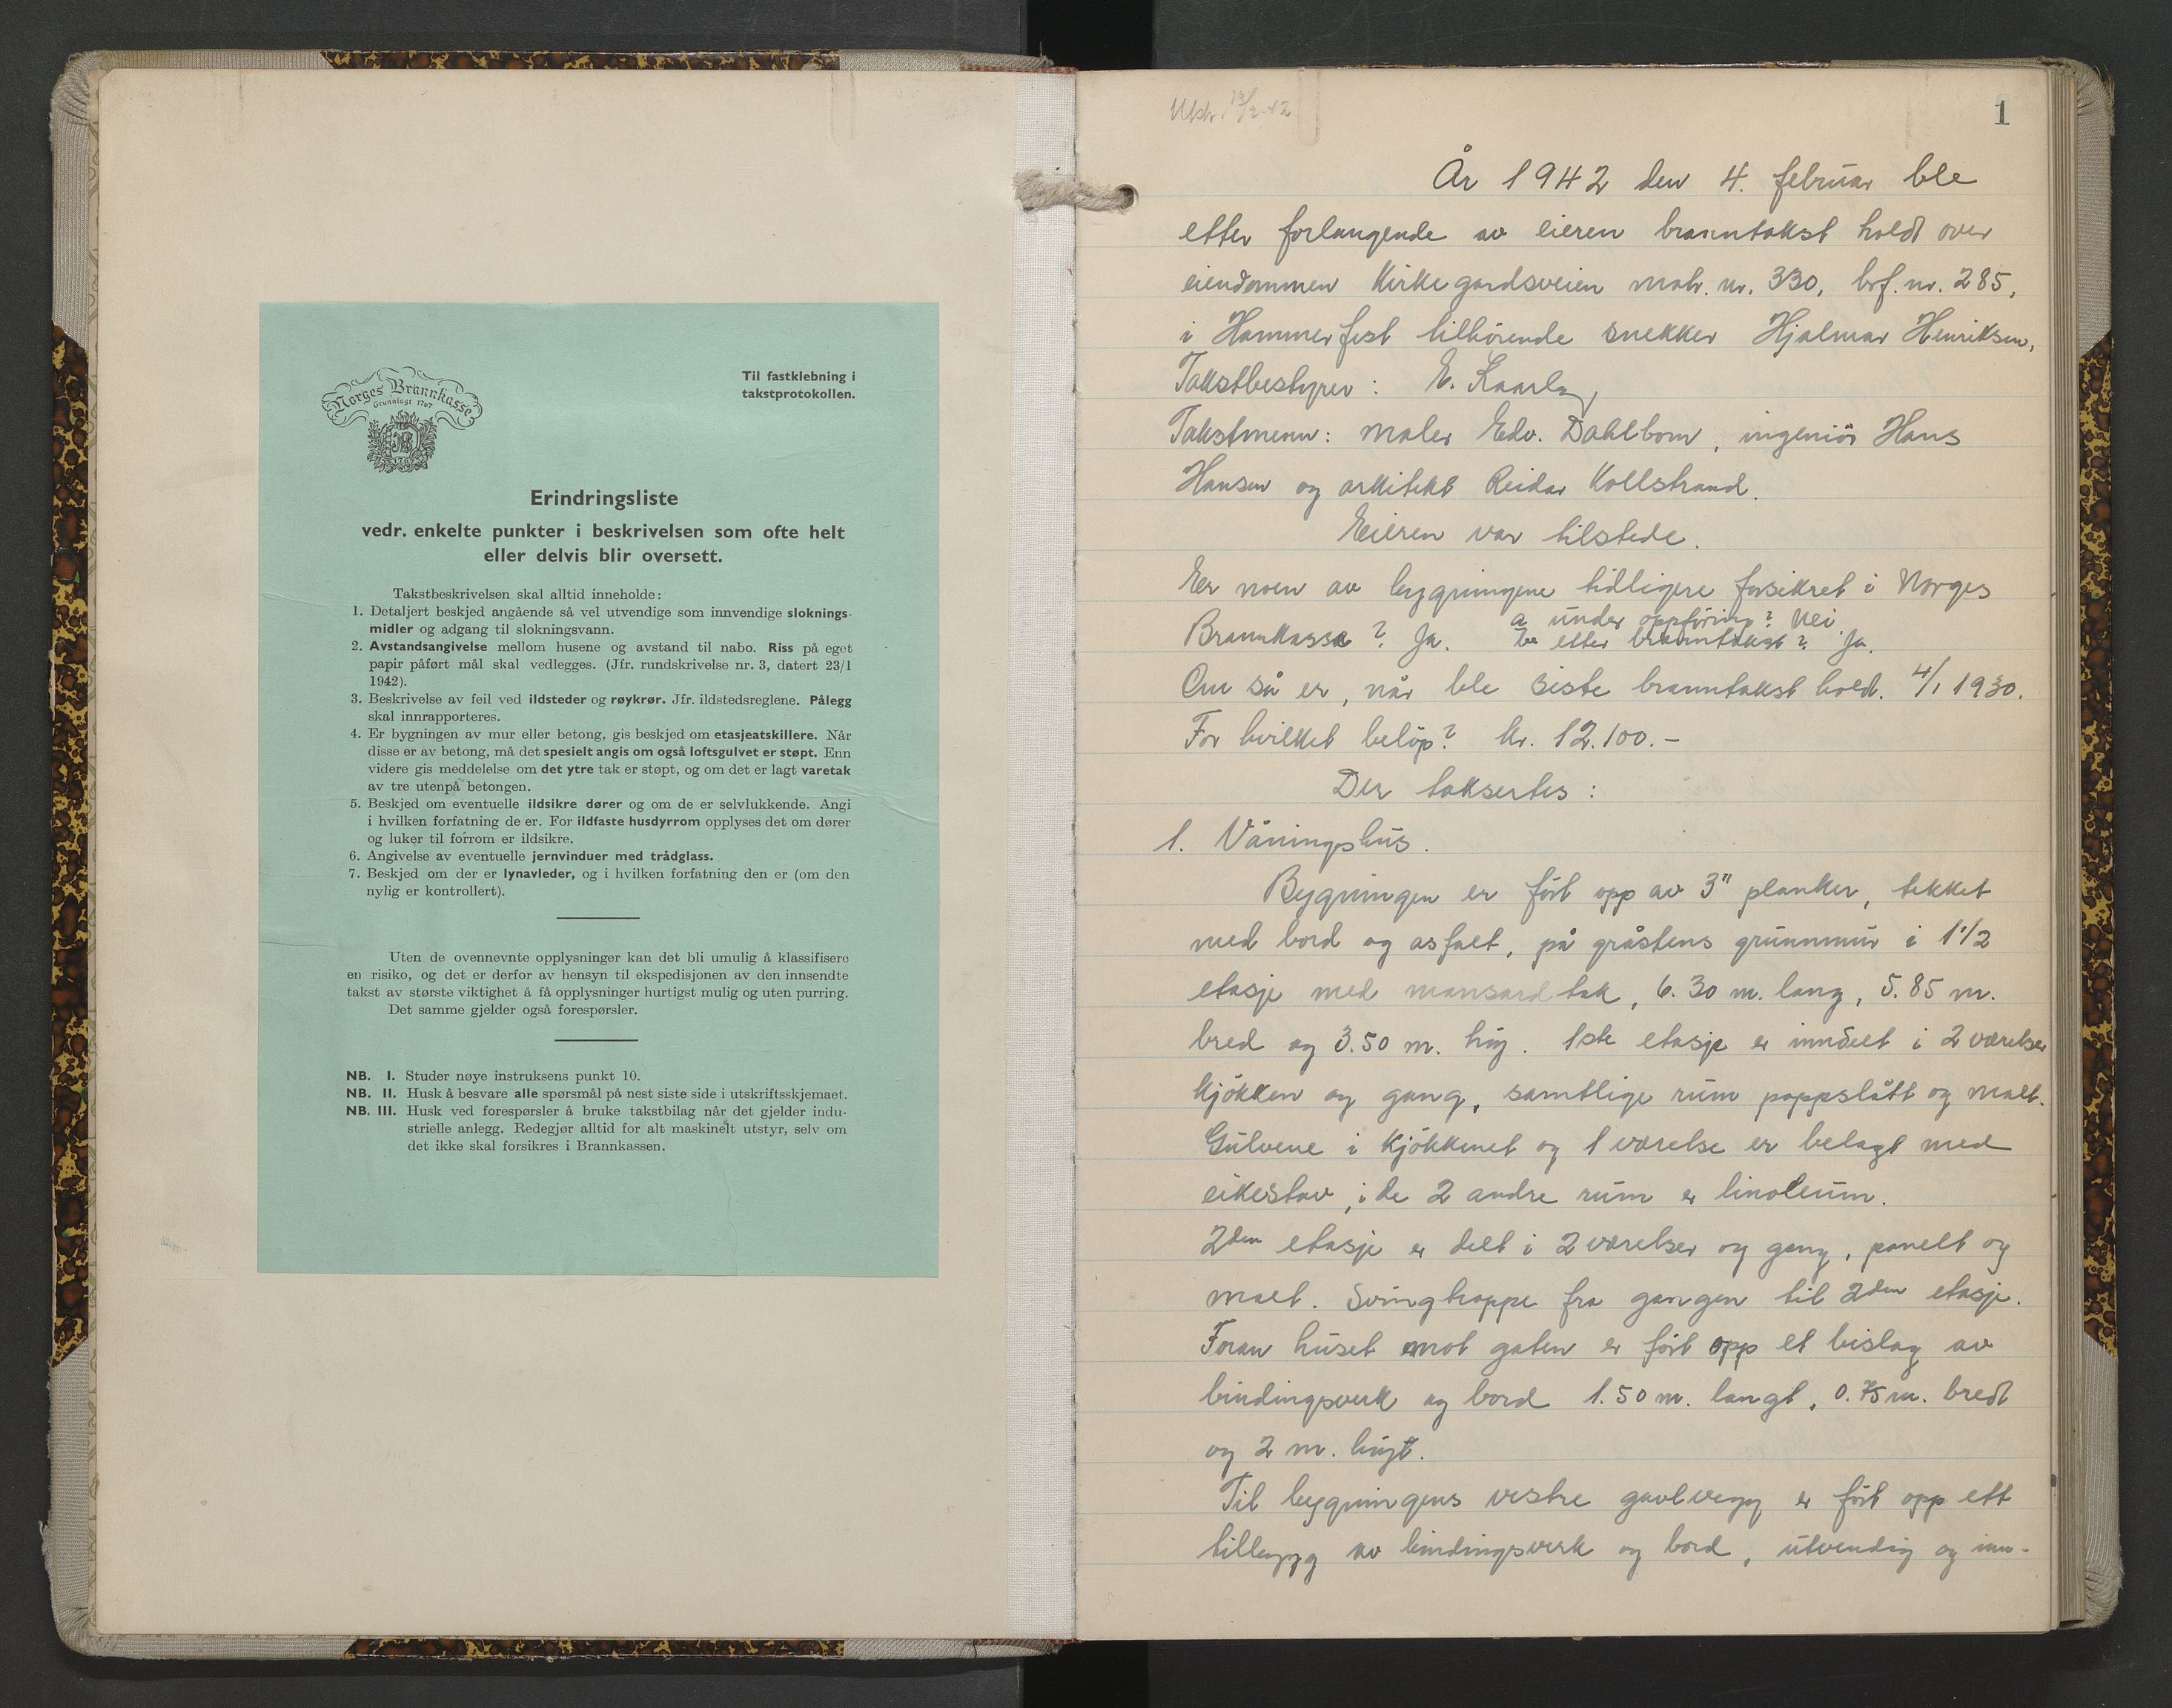 Norges Brannkasse
Grunnlagt 1767
1767
Til fastklebning i
takstprotokollen.
Erindringsliste
vedr. enkelte punkter i beskrivelsen som ofte helt
eller delvis blir oversett.
Takstbeskrivelsen skal alltid inneholde:
1. Detaljert beskjed angående så vel utvendige som innvendige sloknings-
midler og adgang til slokningsvann.
2. Avstandsangivelse mellom husene og avstand til nabo. Riss på eget
papir påført mål skal vedlegges. (Jfr. rundskrivelse nr. 3, datert 23/1
1942).
3. Beskrivelse av feil ved ildsteder og røykrør. Jfr. ildstedsreglene. Pålegg
skal innrapporteres.
4. Er bygningen av mur eller betong, gis beskjed om etasjeatskillere. Når
disse er av betong, må det spesielt angis om også loftsgulvet er støpt. Enn
videre gis meddelelse om det ytre tak er støpt, og om det er lagt varetak
av tre utenpå betongen.
5. Beskjed om eventuelle ildsikre dører og om de er selvlukkende. Angi
i hvilken forfatning de er. For ildfaste husdyrrom opplyses det om dører
og luker til forrom er ildsikre.
6. Angivelse av eventuelle jernvinduer med trådglass.
7. Beskjed om der er lynavleder, og i hvilken forfatning den er (om den
nylig er kontrollert).
Uten de ovennevnte opplysninger kan det bli umulig å klassifisere
en risiko, og det er derfor av hensyn til ekspedisjonen av den innsendte
takst av største viktighet å få opplysninger hurtigst mulig og uten purring.
Det samme gjelder også forespørsler.
NB. I. Studer nøye instruksens punkt 10.
NB. II. Husk å besvare alle spørsmål på nest siste side i utskriftsskjemaet.
NB. III. Husk ved forespørsler å bruke takstbilag når det gjelder indu-
strielle anlegg. Redegjør alltid for alt maskinelt utstyr, selv om
det ikke skal forsikres i Brannkassen.
Utskr.
1
År 1942 den 4. februar ble
etter forlangende av eieren branntakst holdt over
eiendommen Kirkegardsveien matr. nr. 330, brf. nr. 285,
i Hammerfest tilhørende snekker Hjalmar Henriksen,
Takstbestyrer: E. Kaarby
Takstmenn: maler Edv. Dahlbom, ingeniør Hans
Hansen og arkitekt Reidar Kollstrand.
Eieren var tilstede.
Er noen av bygningene tidligere forsikret i Norges
Brannkasse? Ja. a under oppføring? Nei
b etter branntakst? Ja.
Om så er, når ble siste branntakst hold. 4/1 1930.
For hvilket beløp? kr. 12.100.-
Der taksertes:
1. Våningshus.
Bygningen er ført opp av 3" planker, tekket
med bord og asfalt, på gråstens grunnmur i 1 1/2
etasje med mansard tak, 6.30 m. lang, 5.85 m.
bred og 3.50 m. høy. 1ste etasje er inndelt i 2 værelser
kjøkken og gang, samtlige rum pappslått og malt.
Gulvene i kjøkkenet og 1 værelse er belagt med
eikestav, i de 2 andre rum er linoleum.
2den etasje er delt i 2 værelser og gang, panelt og
malt. Svingtrappe fra gangen til 2den etasje.
Foran huset mot gaten er ført opp et bislag av
bindingsverk og bord 1.50 m. langt, 0.75 m. bredt
og 2 m. høyt.
Til bygningens vestre gavlvegg er ført opp ett
tilbygg av bindingsverk og bord, utvendig og inn-